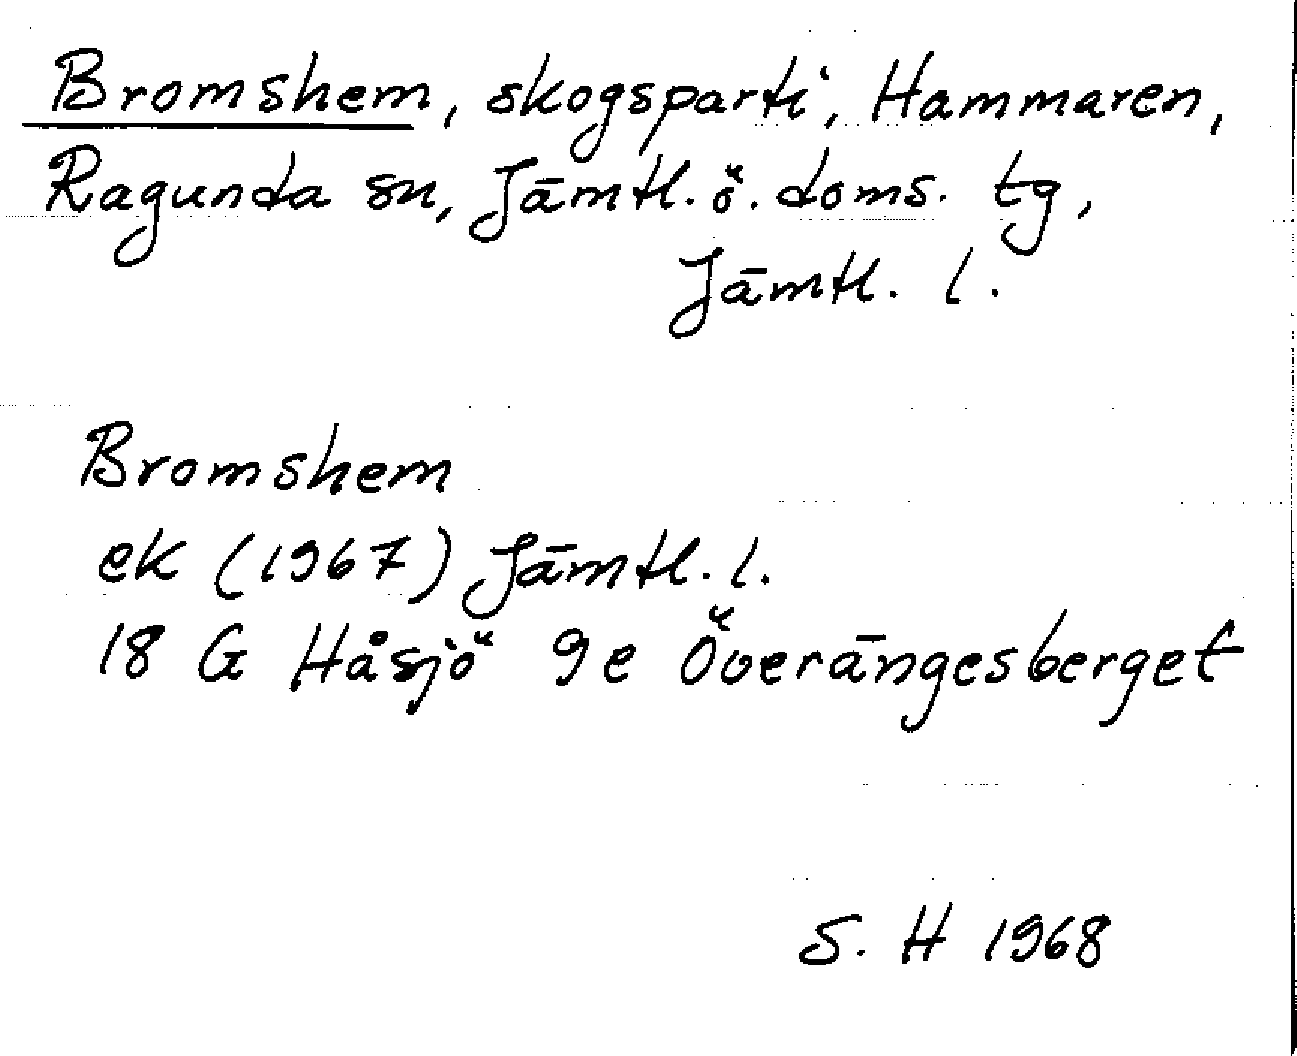 Bromshem, skogsparti, Hammaren,
Ragunda sn, Jämtl. ö. doms. tg,
Jämtl. l.
Bromshem
ek (1967) Jämtl. l.
18 G Håsjö 9e Överängesberget
S. H 1968